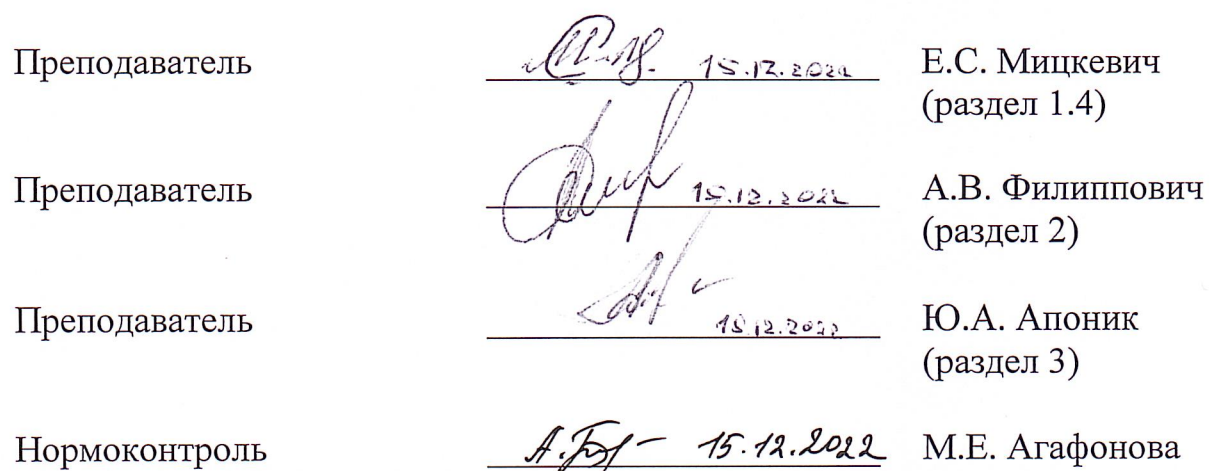 Преподаватель 15.12.2022 Е.С. Мицкевич
(раздел 1.4)
Преподаватель 15.12.2022 А.В. Филиппович
(раздел 2)
Преподаватель 15.12.2022 Ю.А. Апоник
(раздел 3)
Нормоконтроль 15.12.2022 М.Е. Агафонова